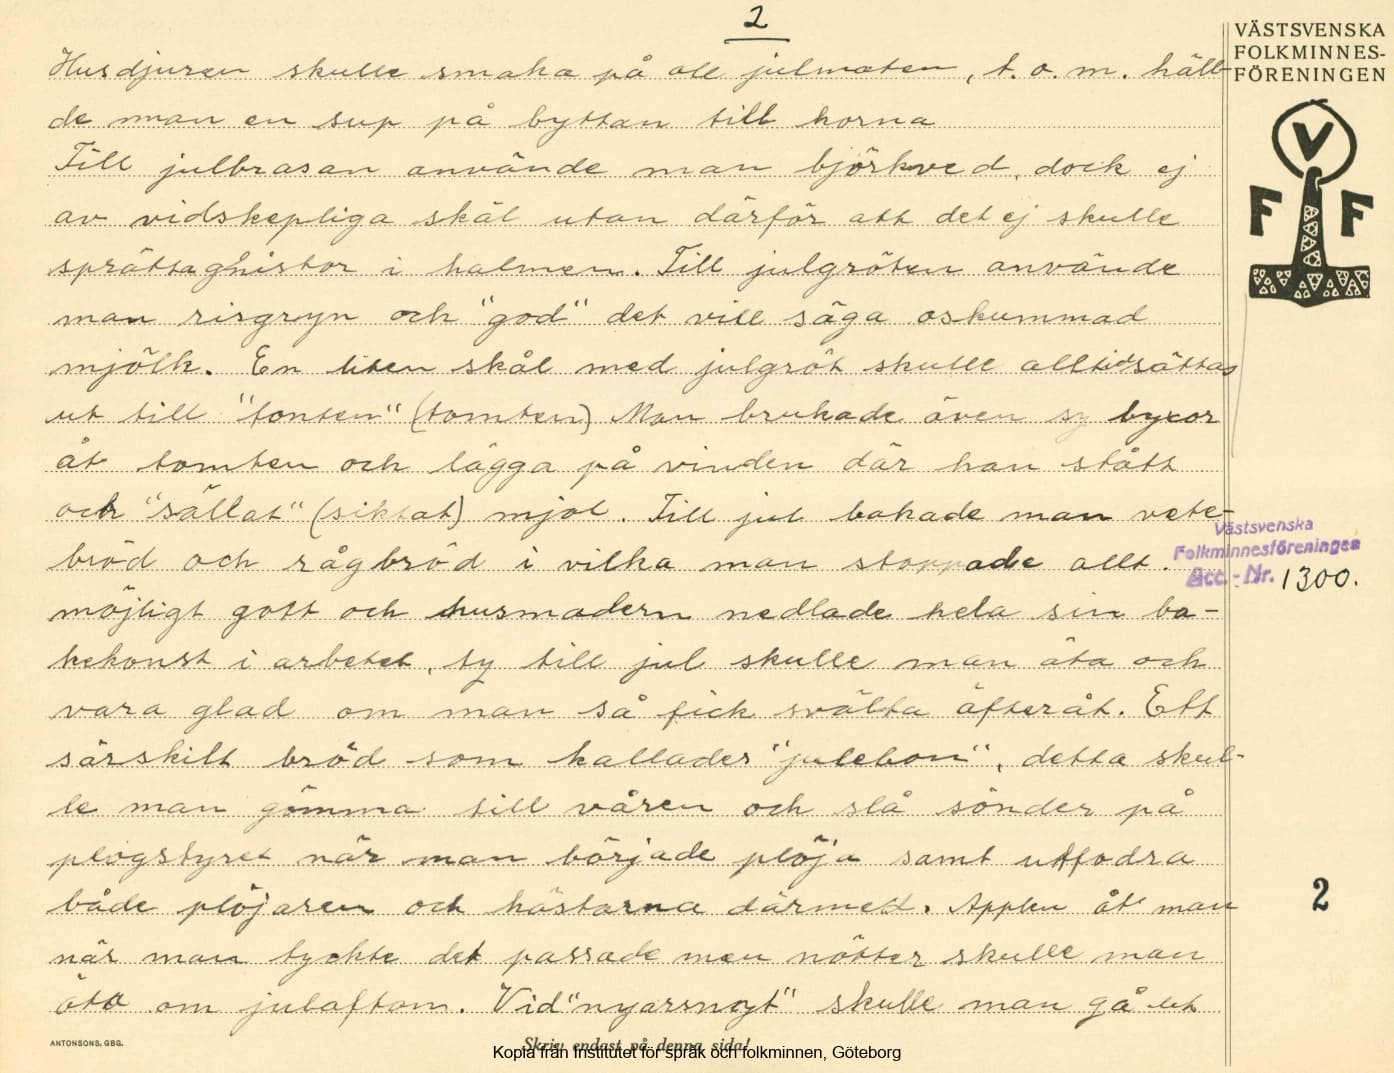 2
VÄSTSVENSKA
FOLKMINNES-
FÖRENINGEN
V
F F
Husdjuren skulle smaka på all julmaten, t.o.m. häll-
de man en sup på byttan till korna
Till julbrasan använde man björkved, dock ej
av vidskepliga skäl utan därför att det ej skulle
sprätta gnistor i halmen. Till julgröten använde
man risgryn och "god" det vill säga oskummad
mjölk. En liten skål med julgröt skulle alltid sättas
ut till "tonten" (tomten) Man brukade även sy byxor
åt tomten och lägga på vinden där han stått
och "sållat" (siktat) mjöl. Till jul bakade man vete-
bröd och rågbröd i vilka man stoppade allt
möjligt gott och husmodern nedlade hela sin ba-
kekonst i arbetet, ty till jul skulle man äta och
vara glad om man så fick svälta äfteråt. Ett
särskilt bröd som kallades "julebon", detta skul-
le man gömma till våren och slå sönder på
plogstyret när man började plöja samt utfodra
både plöjaren och hästarna därmed. Applen åt man
när man tyckte det passade men nötter skulle man
äta om julaftom. Vid "nyarsnyt" skulle man gå ut
Västsvenska
Folkminnesföreningen
Acc. - Nr. 1300.
2
ANTONSONS, GBG.
Skriv endast på denna sida!
Kopia från Institutet för språk och folkminnen, Göteborg